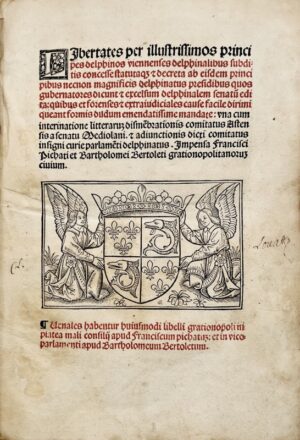 Libertates per illustrissimos princi
pes delphinos viennenses delphinalibus subdi
tis concesse statutaqʒ & decreta ab eisdem princi
pibus necnon magnificis delphinatus presidibus quos
gubernatores dicunt & excelsum delphinalem senatū edi
ta: quibus et forenses & extraiudiciales cause facile dirimi
queant formis dudum emendatissime mandate: vna cum
interinatione litterarum dismēbrationis comitatus Asten
sis a senatu Mediolani. & adiunctionis dicti comitatus
insigni curie parlamēti delphinatus. Impensa Francisci
Pichati et Bartholomei Bertoleti gratianopolitanorum
ciuium.
¶ Uenales habentur huiusmodi libelli gratianopoli in
platea mali consilij apud Franciscum pichatum: et in vico
parlamenti apud Bartholomeum Bertoletum.